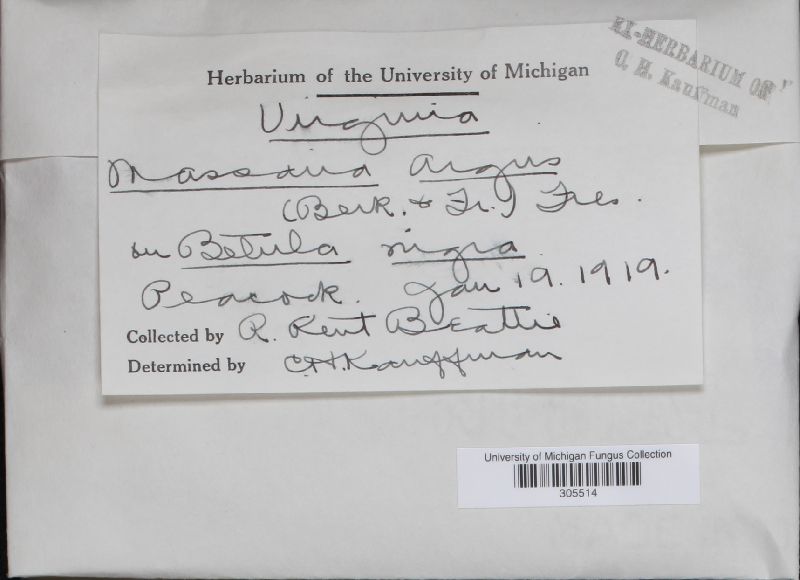 EX-HERBARIUM OF
C. H. Kauffman
Herbarium of the University of Michigan
Virginia
Massaria argus
(Berk. & Fr.) Fres.
on Betula nigra
Peacock. Jan 19. 1919.
Collected by R. Kent Beattie
Determined by C.H. Kauffman
University of Michigan Fungus Collection
305514